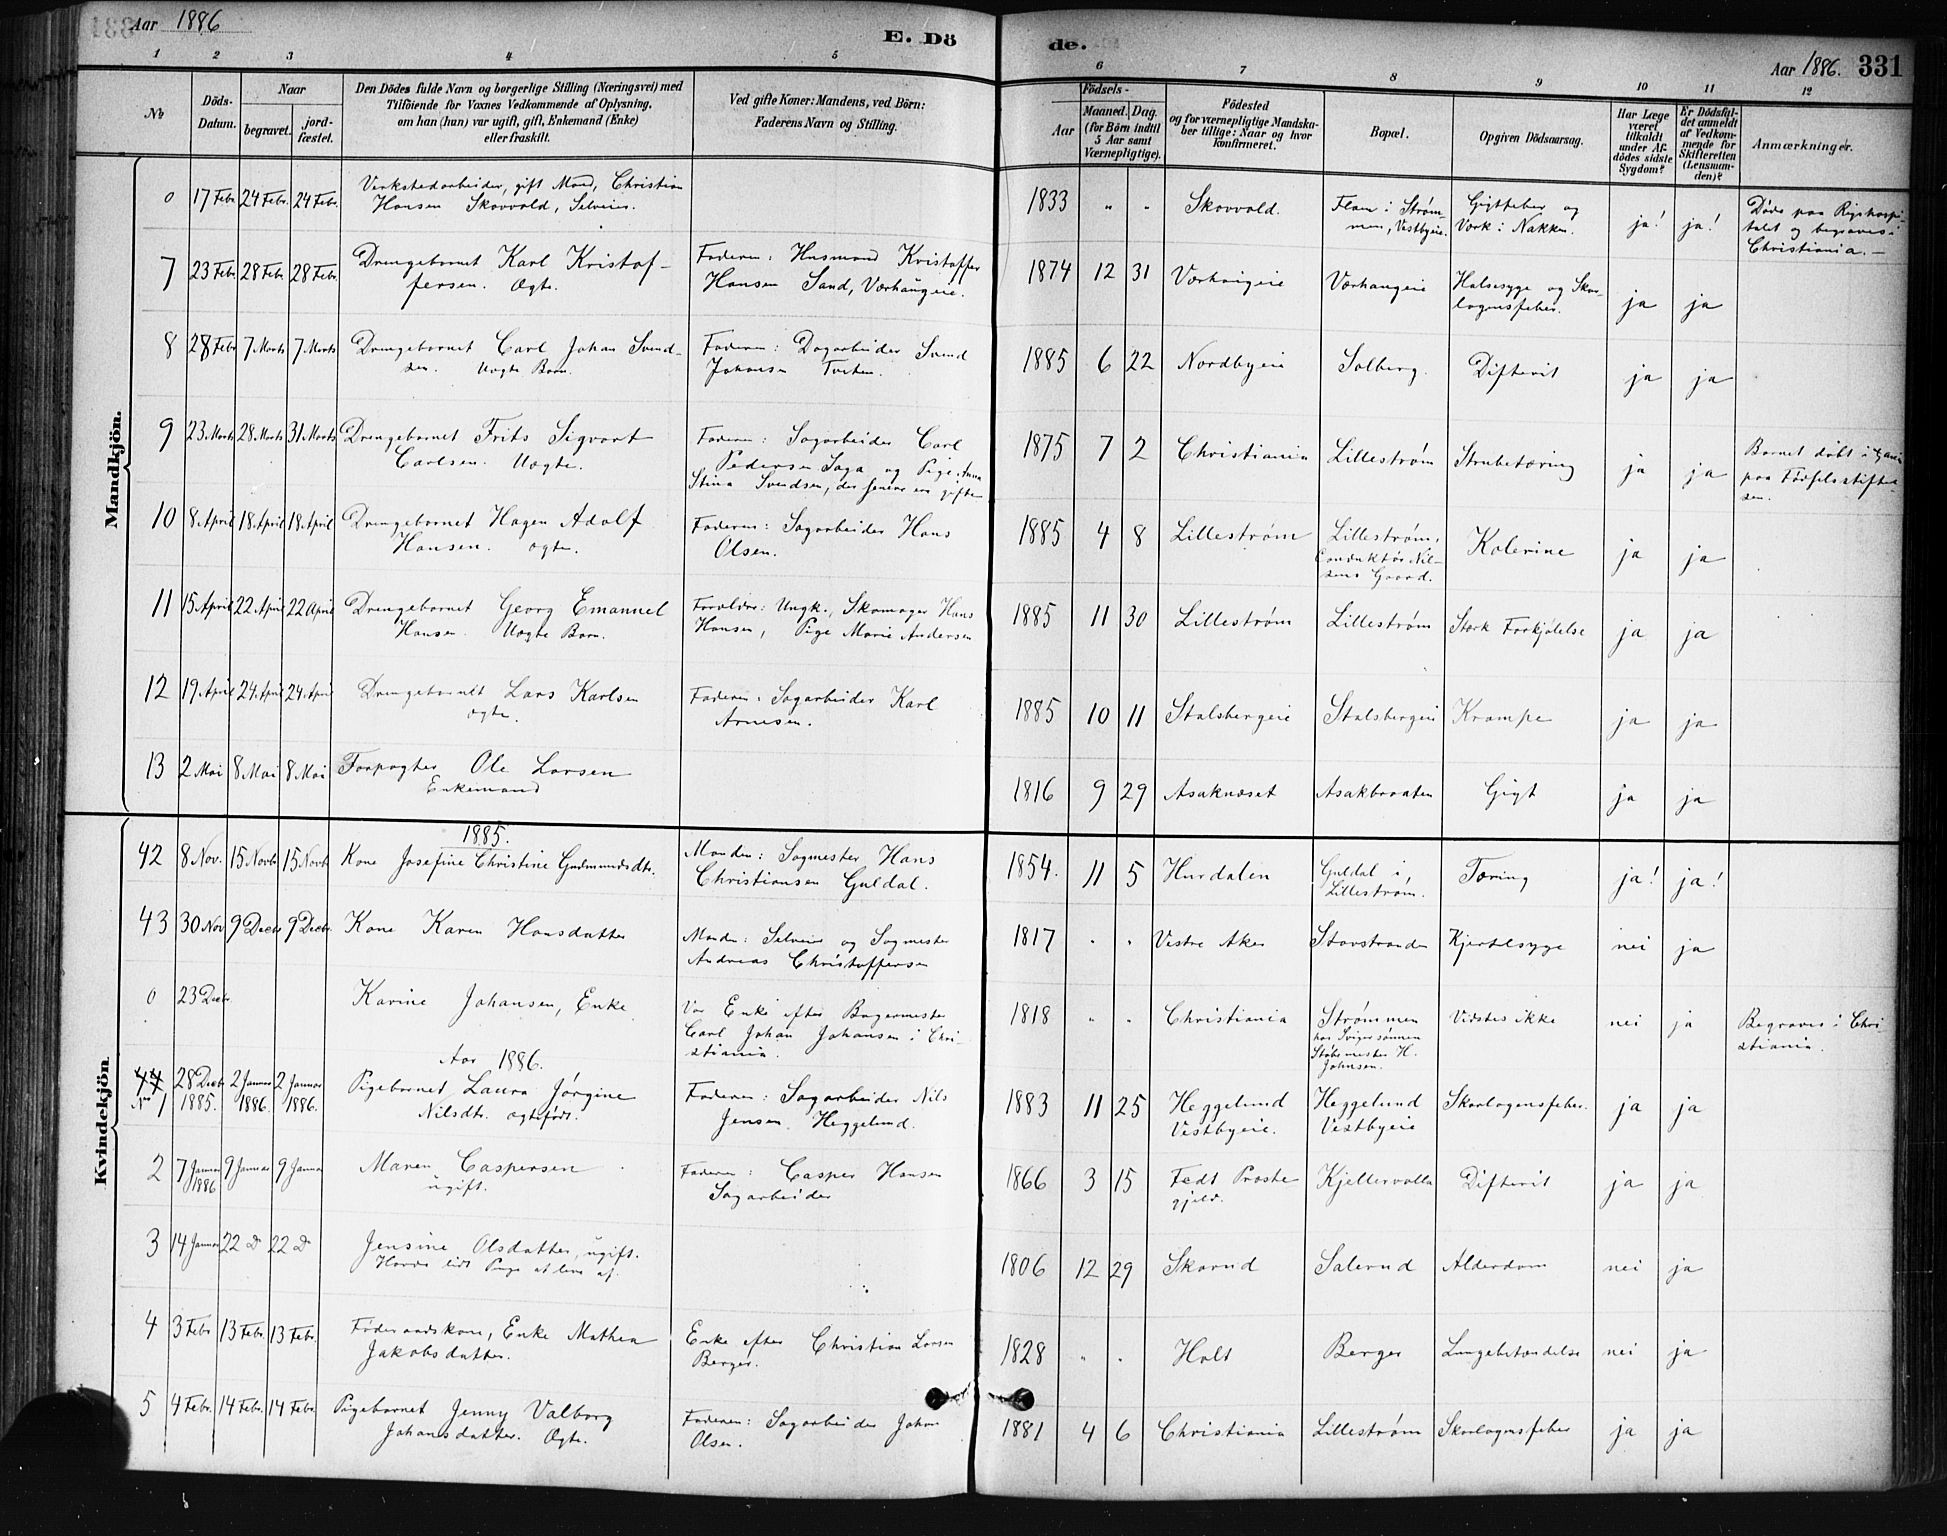 Aar 1886
E. Dö
de.
Aar 1886. 331
1 2 3 4 5 6 7 8 9 10 11 12
No
Döds-
Datum.
Naar
begravet.
jord-
fæstet.
Den Dödes fulde Navn og borgerlige Stilling (Næringsvei) med
Tilföiende for Voxnes Vedkommende af Oplysning,
om han (hun) var ugift, gift, Enkemand (Enke)
eller fraskilt.
Ved gifte Koner: Mandens, ved Börn:
Faderens Navn og Stilling.
Födsels-
Aar
Maaned. Dag.
(for Börn indtil
5 Aar samt
Værnepligtige).
Födested
og for værnepligtige Mandska-
ber tillige: Naar og hvor
konfirmeret.
Bopæl.
Opgiven Dödsaarsag.
Har Læge
været
tilkaldt
under Af-
dödes sidste
Sygdom?
Er Dödsfal-
det anmeldt
af Vedkom-
mende for
Skifteretten
(Lensman-
den)?
Anmærkninger.
Mandkjön.
0 17 Febr. 24 Febr. 24 Febr.
Verkstedarbeider, gift Mand, Christian
Hansen Skovvold, Selveier.
1833 " " Skovvold.
Flam i Strøm-
men, Vestbyeie.
Gigtfeber og
Værk i Nakken.
ja! ja!
Døde paa Rigshospi-
talet og begraves i
Christiania.
7 23 Febr. 28 Febr. 28 Febr.
Drengebarnet Karl Kristof-
fersen. Ægte.
Faderen: Husmand Kristoffer
Hansen Sand, Værhaugeie.
1874 12 31 Værhaugeie Værhaugeie
Halsesyge og Skar-
lagensfeber.
ja ja
8 28 Febr 7 Marts 7 Marts
Drengebarnet Carl Johan Svend-
sen. Uægte Barn.
Faderen: Dagarbeider Svend
Johansen Tveten.
1885 6 22 Nordbyeie Solberg. Difterit ja ja
9 23 Marts 28 Marts 31 Marts
Drengebarnet Frits Sigvart
Carlsen. Uægte.
Faderen: Sagarbeider Carl
Pedersen Saga og Pige Anna
Stina Svendsen, der senere ere gifte
1875 7 2 Christiania Lillestrøm Strubetæring ja ja
Barnet døbt i
paa Fødselsstiftel-
sen.
10 8 April 18 April 18 April
Drengebarnet Hagen Adolf
Hansen. ægte.
Faderen: Sagarbeider Hans
Olsen.
1885 4 8 Lillestrøm
Lillestrøm,
Conduktør Nil-
sens Gaard.
Kolerine ja ja
11 15 April 22 April 22 April
Drengebarnet Georg Emanuel
Hansen. Uægte Barn.
Forældre: Ungk., Skomager Hans
Hansen, Pige Marie Andersen
1885 11 30 Lillestrøm Lillestrøm Stærk Forkjølelse ja ja
12 19 April 24 April 24 April
Drengebarnet Lars Karlsen
ægte.
Faderen: Sagarbeider Karl
Arnesen.
1885 10 11 Stalsbergeie Stalsbergeie Krampe ja ja
13 2 Mai 8 Mai 8 Mai
Forpagter Ole Larsen
Enkemand
1816 9 29 Asaknæset Asakbraaten Gigt ja ja
Kvindekjön
1885.
42 8 Nov. 15 Novb. 15 Novb.
Kone Josefine Christine Gudmundsdtr.
Manden: Sagmester Hans
Christiansen Guldal.
1854. 11 5 Hurdalen
Guldal i
Lillestrøm.
Tæring ja! ja!
43 30 Nov 9 Decbr 9 Decbr.
Kone Karen Hansdatter
Manden: Selveier og Sagmester
Andreas Christoffersen
1817 " " Vestre Aker Stavstranden Kjertelsyge nei ja
0 23 Decbr.
Karine Johansen, Enke
Var Enke efter Bagermester
Carl Johan Johansen i Chri-
stiania.
1818 " " Christiania
Strømmen
hos Svigersønnen
Støbemester H.
Johnsen.
Vidstes ikke nei ja
Begraves i Chri
stiania.
Aar 1886.
44 28 Decbr 2 Januar 2 Januar
No 1 1885. 1886. 1886.
Pigebarnet Laura Jørgine
Nilsdtr. ægtefødt.
Faderen: Sagarbeider Nils
Jensen Heggelund.
1883 11 25
Heggelund
Vestbyeie.
Heggelund
Vestbyeie
Skarlagensfeber. ja ja
2 7 Januar 9 Januar 9 Januar
1886
Maren Caspersen
ugift.
Faderen: Casper Hansen
Sagarbeider
1866 3 15
Fedt Præste
gjeld.
Kjellervolla Difterit ja ja
3 14 Januar 22 D 22 D
Jensine Olsdatter, ugift.
Havde lidt Penge at leve af.
1806 12 29 Skarud Salerud Alderdom nei ja
4 3 Febr 13 Febr. 13 Febr.
Føderaadskone, Enke Mathea
Jakobsdatter.
Enke efter Christian Larsen
Berger.
1828 " " Holt Berger Lungebetændelse nei ja
5 4 Febr. 14 Febr. 14 Febr.
Pigebarnet Jenny Valborg
Johansdatter. Ægte.
Faderen: Sagarbeider Johan
Olsen.
1881 4 6 Christiania Lillestrøm Skarlagensfeber ja ja